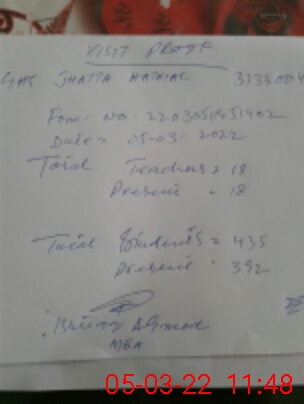 VISIT PROOF
GHS JHATTA HATHIAL
Form No. 220305
Date 05-03-2022
Total Teachers = 18
Present = 18
Total Students = 435
Present = 392
Ahmad
MEA
05-03-22 11:48